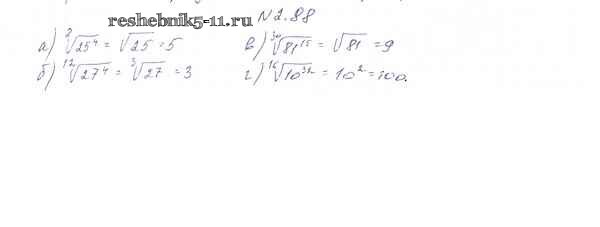 reshebnik5-11.ru №2.88
а) ⁸√25⁴ = √25 = 5 в) ³⁰√81¹⁵ = √81 = 9
б) ¹²√27⁴ = ³√27 = 3 г) ¹⁶√10³² = 10² = 100.